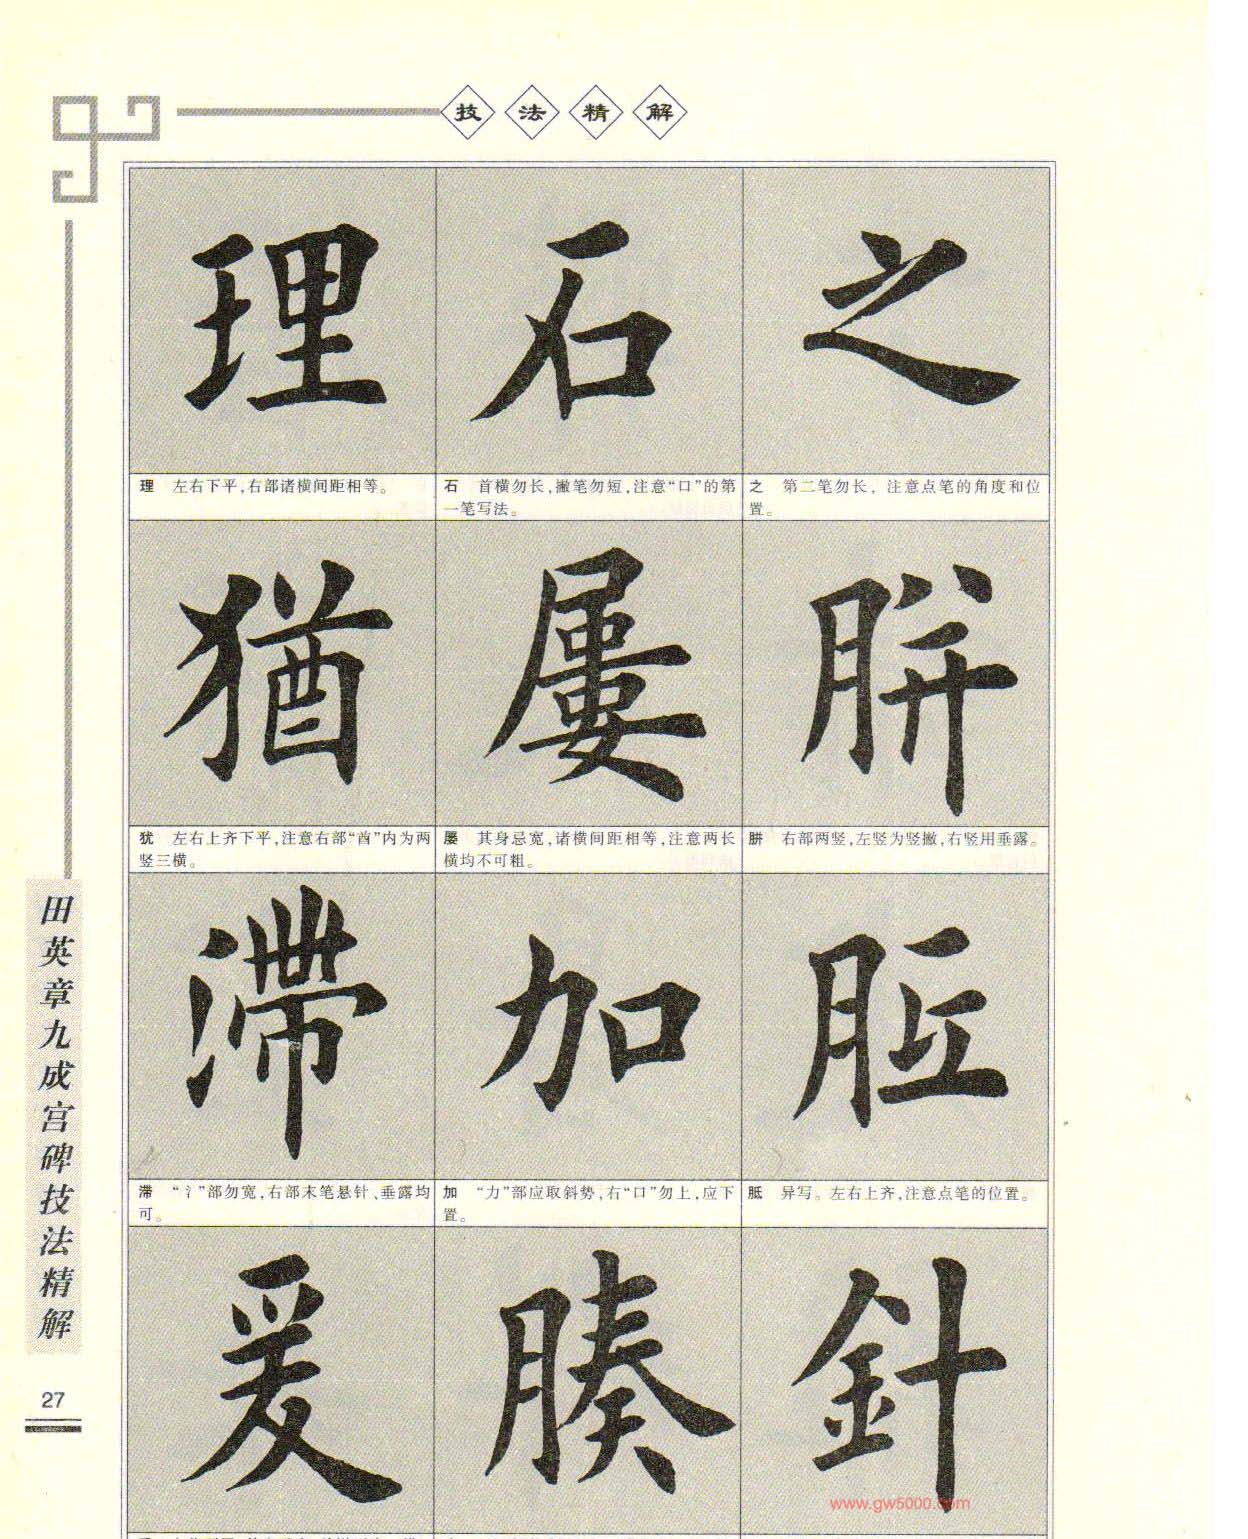 技法精解
理 石 之
理 左右下平,右部诸横间距相等。
石 首横勿长,撇笔勿短,注意“口”的第
一笔写法。
之 第二笔勿长,注意点笔的角度和位
置。
猶 屢 胼
犹 左右上齐下平,注意右部“酋”内为两
竖三横。
屡 其身忌宽,诸横间距相等,注意两长
横均不可粗。
胼 右部两竖,左竖为竖撇,右竖用垂露。
滯 加
滞 “氵”部勿宽,右部末笔悬针、垂露均
可。
加 “力”部应取斜势,右“口”勿上,应下
置。
胝 异写。左右上齐,注意点笔的位置。
爰 腠 針
田英章九成宫碑技法精解
27
www.gw5000.com